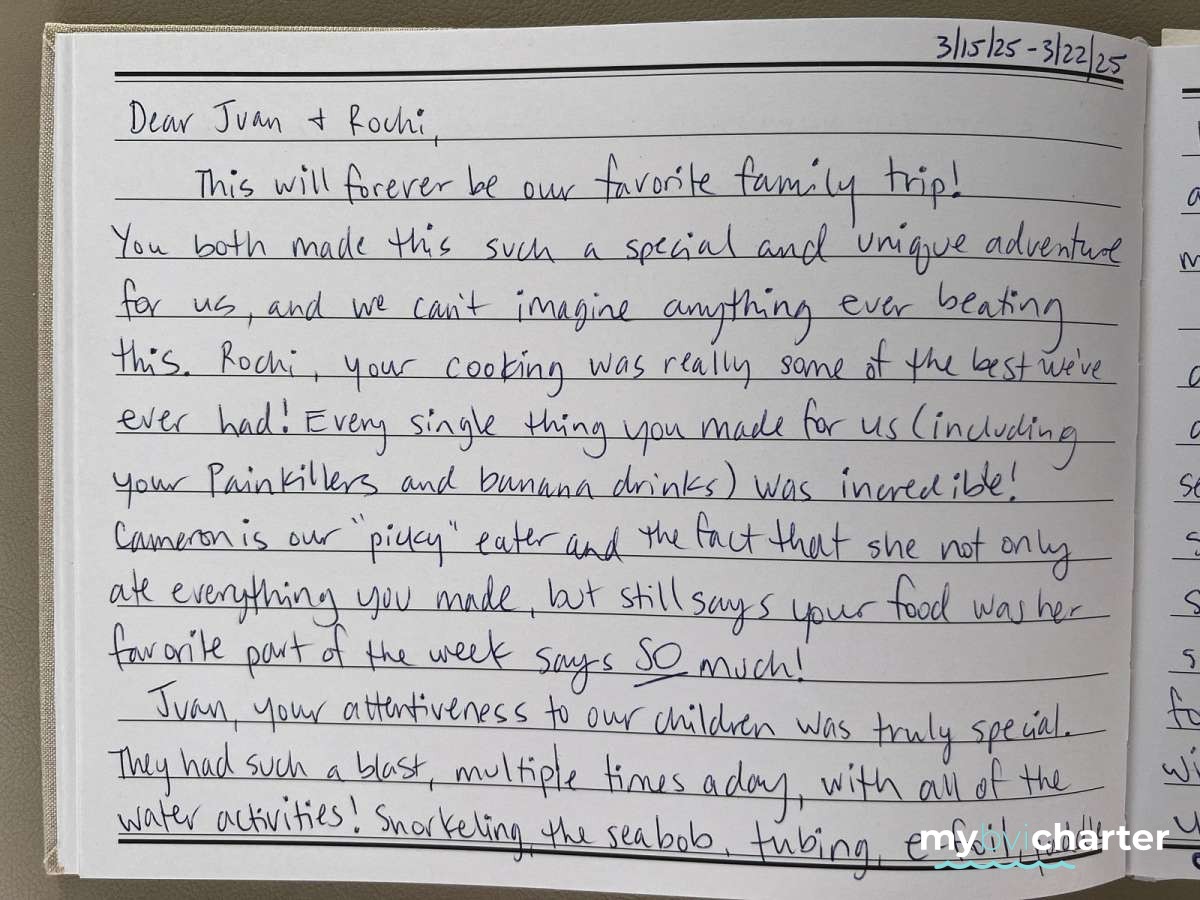 3/15/25 - 3/22/25
Dear Juan + Rochi,
This will forever be our favorite family trip!
You both made this such a special and unique adventure
for us, and we can't imagine anything ever beating
this. Rochi, your cooking was really some of the best we've
ever had! Every single thing you made for us (including
your Painkillers and banana drinks) was incredible!
Cameron is our "picky" eater and the fact that she not only
ate everything you made, but still says your food was her
favorite part of the week says SO much!
Juan, your attentiveness to our children was truly special.
They had such a blast, multiple times a day, with all of the
water activities! Snorkeling, the seabob, tubing,
mybvicharter